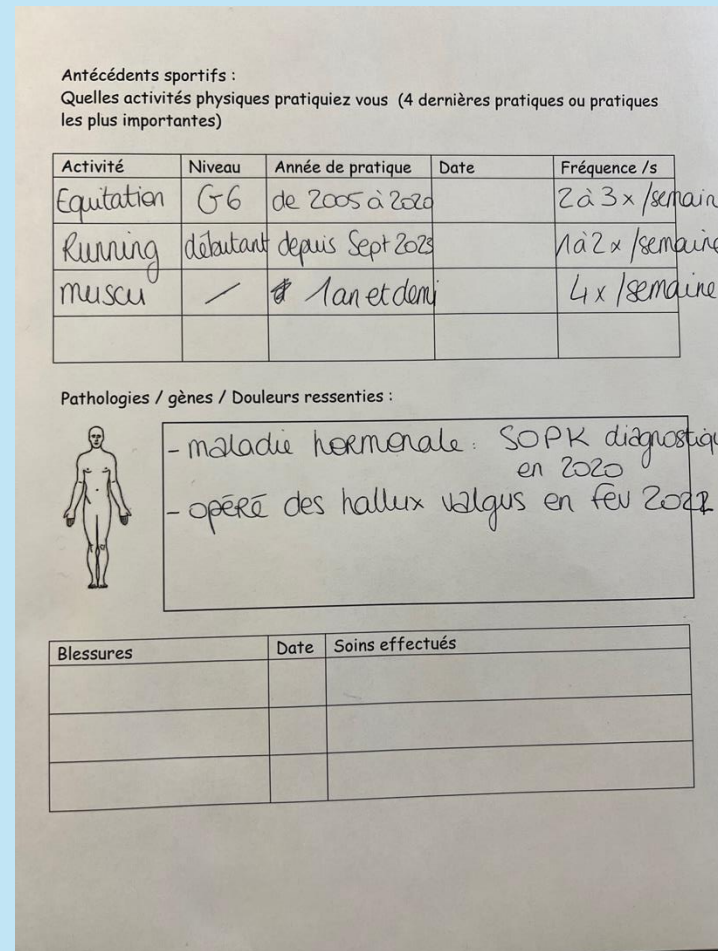 Antécédents sportifs :
Quelles activités physiques pratiquiez vous (4 dernières pratiques ou pratiques
les plus importantes)
Activité Niveau Année de pratique Date Fréquence /s
Equitation G6 de 2005 à 2020 2 à 3 x /semain
Running débutant depuis Sept 2023 1 à 2 x /semaine
muscu / 1 an et demi 4x /semaine
Pathologies / gènes / Douleurs ressenties :
- maladie hormonale : SOPK diagnostiqu
en 2020
- opéré des hallux valgus en fev
Blessures Date Soins effectués